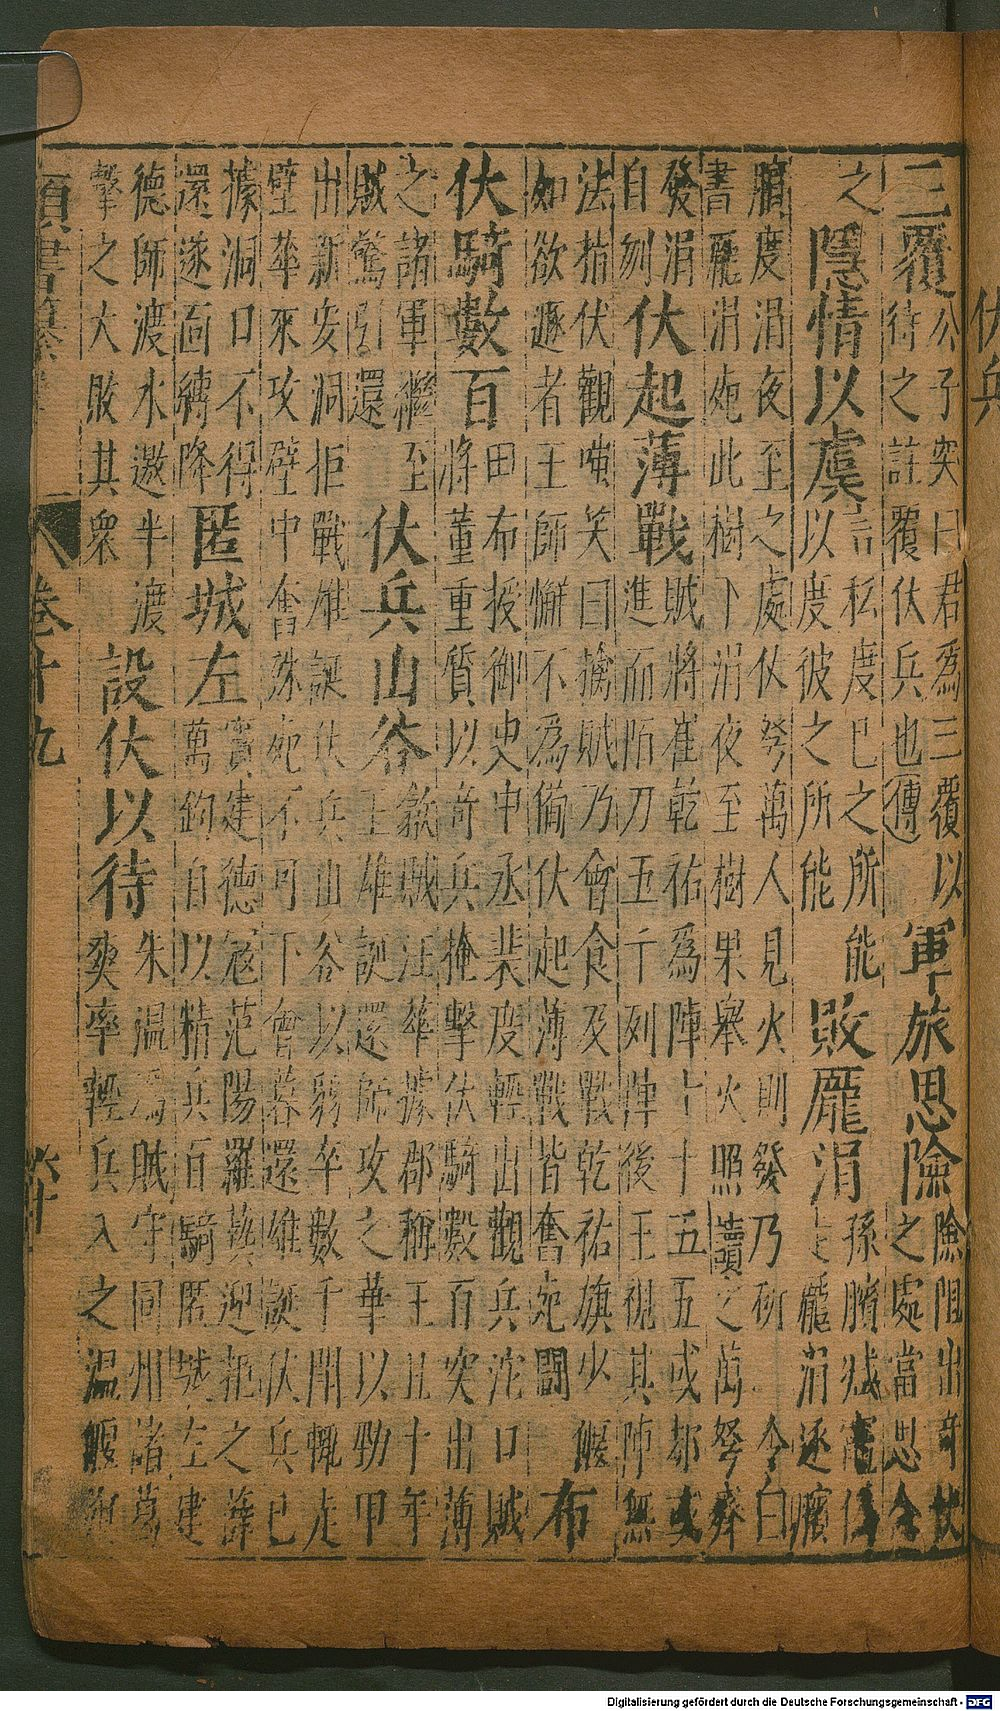 伏兵
三覆
公子突曰君為三覆以
待之註覆伏兵也傳
軍旅思險
險阻出奇伏
之處當思念
之
隱情以虞
言私度已之所能
以度彼之所能
敗龐涓
孫臏減竈但
走龐涓逐臏
臏度涓夜至之處伏弩萬人見火則發乃斫 令白
書龐涓死此樹下涓夜至樹果舉火照讀之萬弩齊
發涓
自刎
伏起薄戰
賊將崔乾祐為陣十十五五或都或
進而陌刀五千列陣後王視其陣無
法指伏觀嗤笑曰擒賊乃會食及戰乾祐旗少偃
如欲遁者王師懈不為備伏起薄戰皆奮死鬭
布
伏騎數百
田布授御史中丞裴度輕出觀兵沱口賊
將董重質以奇兵掩擊伏騎數百突出薄
之諸軍繼至
賊驚引還
伏兵山谷
歙賊汪華據郡稱王且十年
王雄誕還師攻之華以勁甲
出新安洞拒戰雄誕伏兵山谷以弱卒數千鬥輒走
壁華來攻壁中奮殊死不可下會暮還雄誕伏兵已
據洞口不得
還遂面縛降
匿城左
竇建德寇范陽羅藝迎拒之薛
萬鈞自以精兵百騎匿城左建
德師渡水邀半渡
擊之大敗其衆
設伏以待
朱溫為賊守同州諸葛
爽率輕兵入之溫偃
類書纂 卷十九 六十
Digitalisierung gefördert durch die Deutsche Forschungsgemeinschaft - DFG